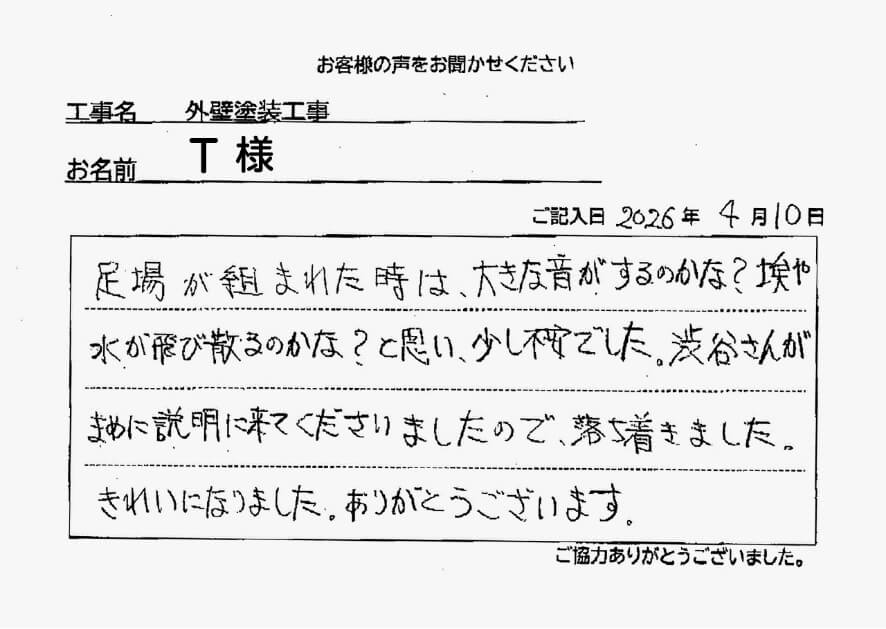 お客様の声をお聞かせください
工事名 外壁塗装工事
お名前 T 様
ご記入日 2026年 4月10日
足場が組まれた時は、大きな音がするのかな?埃や
水が飛び散るのかな?と思い、少し不安でした。渋谷さんが
まめに説明に来てくださいましたので、落ち着きました。
きれいになりました。ありがとうございます。
ご協力ありがとうございました。